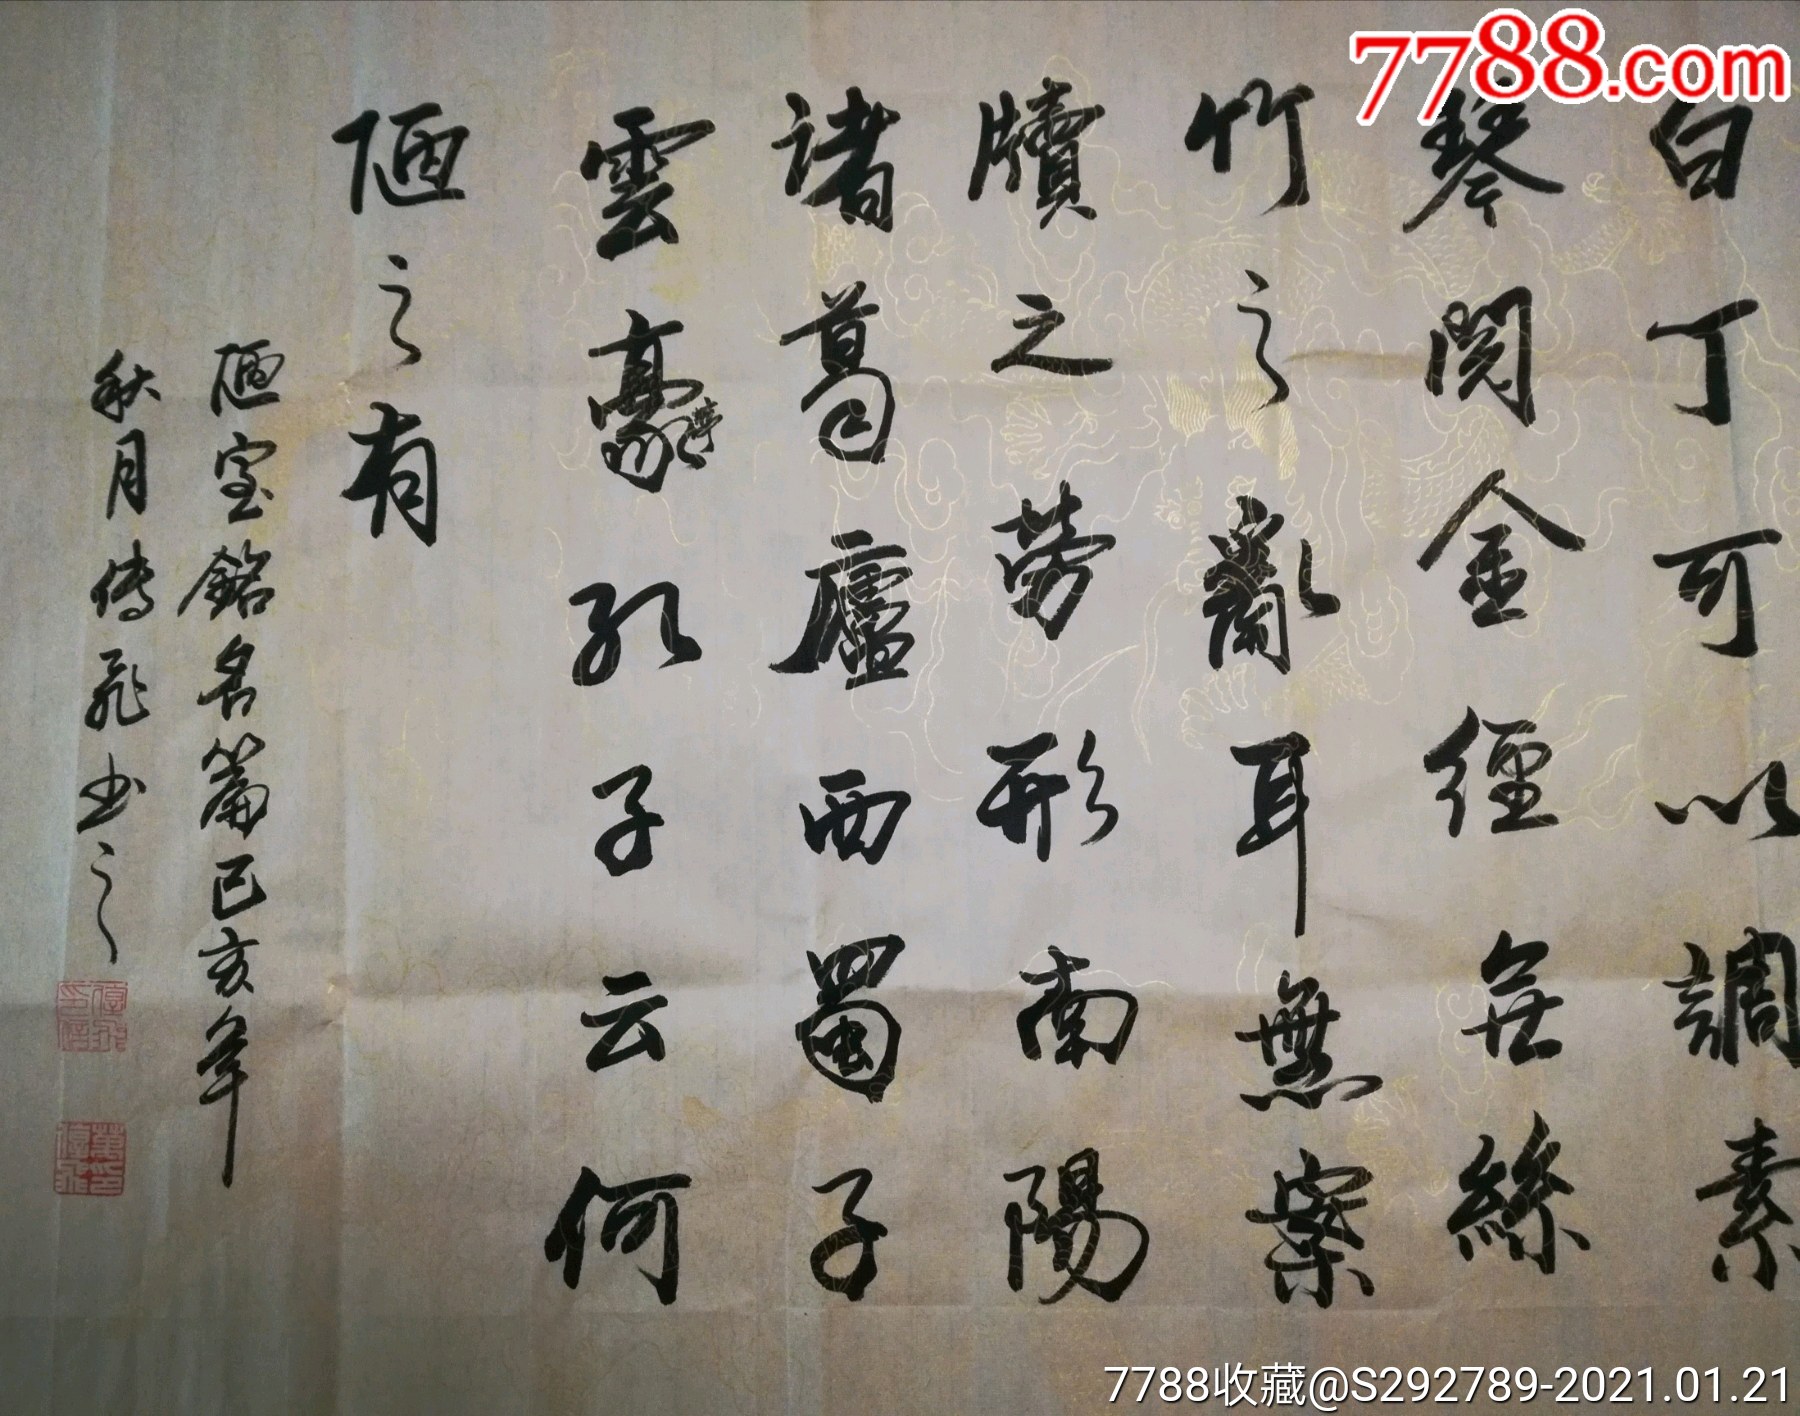 7788.com
白丁可以調素
琴閱金經無絲
竹之亂耳無案
牘之勞形南陽
諸葛廬西蜀子
雲豪亭孔子云何
陋之有
陋室銘名篇己亥年
秋月傳飛书之
7788收藏@S292789-2021.01.21